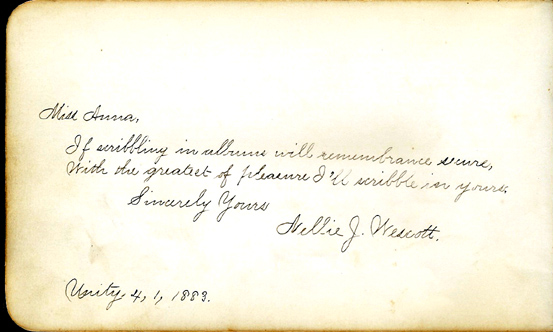 Miss Anna,
If scribbling in albums will remembrance secure,
With the greatest of pleasure I'll scribble in yours.
Sincerely Yours
Nellie J. Wescott.
Unity, 4, 1, 1883.